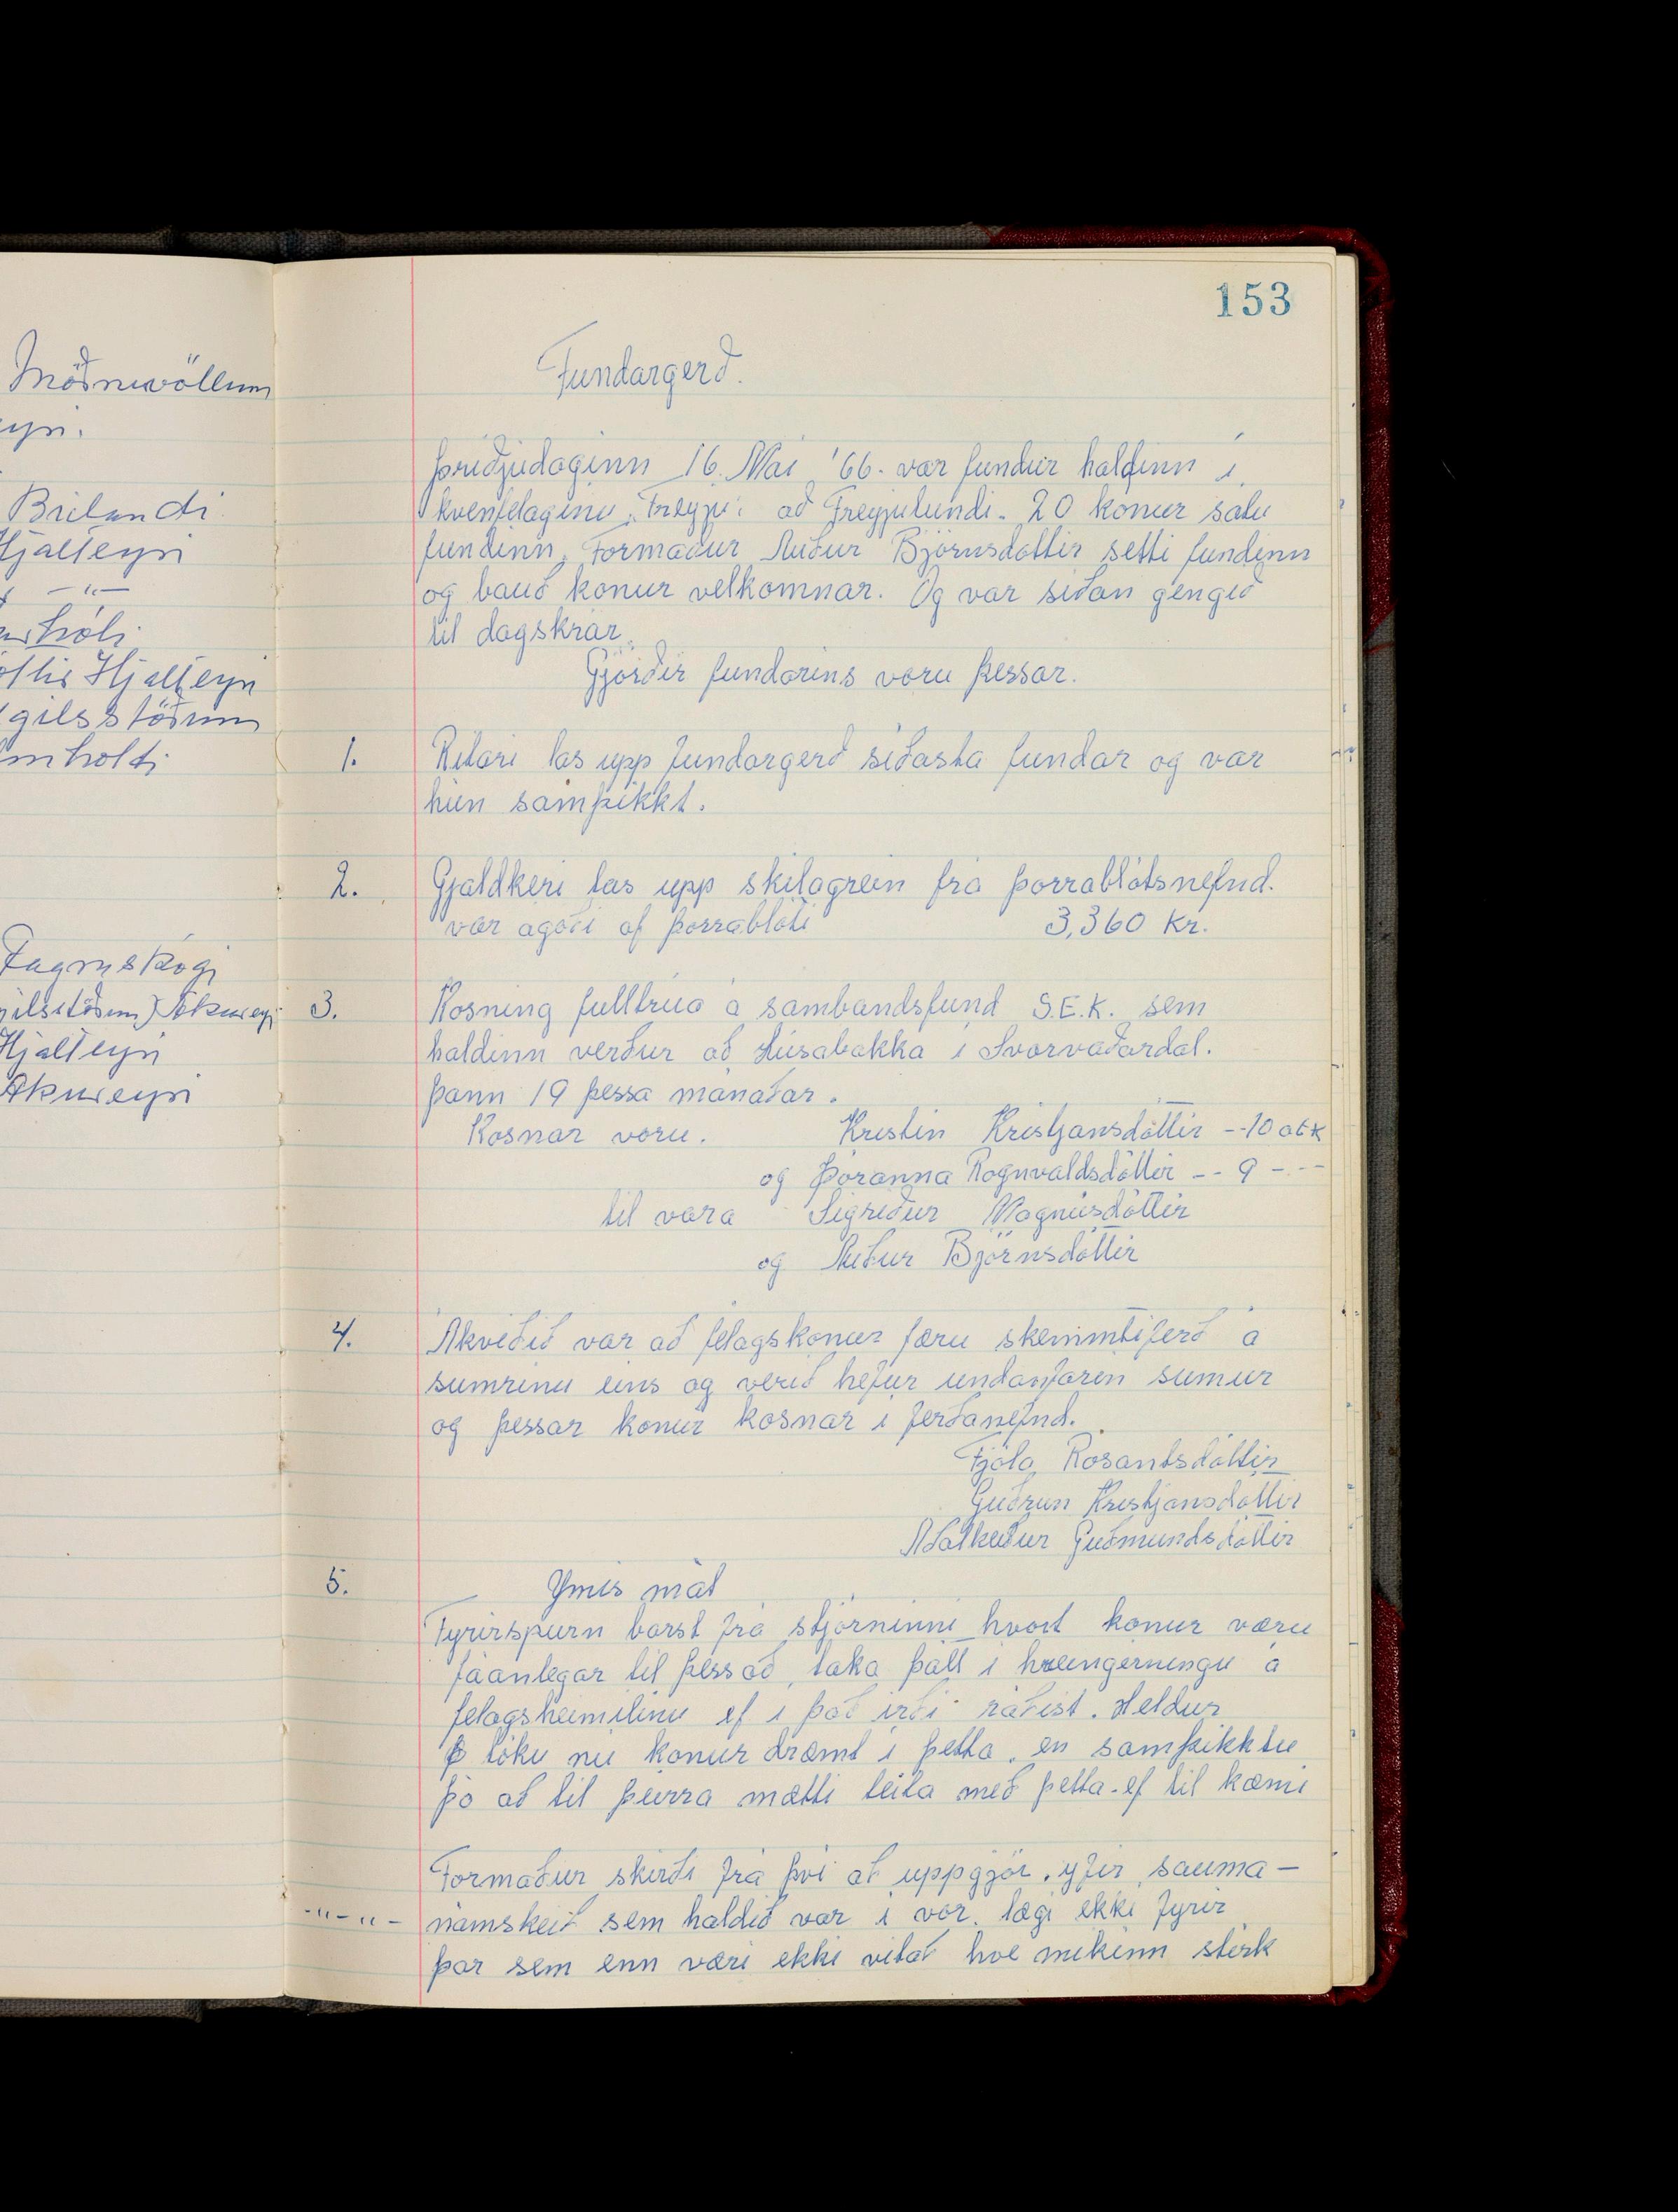 Möðruvöllum
eyri.
Brúlandi
Hjalteyri
— " —
Hjalteyri
gilsstöðum
mholti
Fagraskógi
Akureyri
Hjalteyri
Akureyri
153
Fundargerð.
Þriðjudaginn 16. Mai '66. var fundur haldinn í
kvenfelaginu "Freyju" að Freyjulundi. 20 konur satu
fundinn, Formaður Auður Björnsdóttir setti fundinn
og bauð konur velkomnar. Og var siðan gengið
til dagskrár.
Gjörðir fundarins voru þessar.
1. Ritari las upp fundargerð siðasta fundar og var
hún samþikkt.
2. Gjaldkeri las upp skilagrein frá þorrablótsnefnd.
var agóði af þorrablóti 3,360 kr.
3. Kosning fulltrúa á sambandsfund S.E.K. sem
haldinn verður að Húsabakka i Svarvaðardal.
þann 19 þessa mánaðar.
Kosnar voru. Kristin Kristjansdóttir -- 10 atk
og Þóranna Rognvaldsdóttir -- 9 - --
til vara Sigriður Magnúsdóttir
og Auður Björnsdóttir
4. Akveðið var að felagskonur færu skemmtiferð á
sumrinu eins og verið hefur undanfarin sumur
og þessar konur kosnar i ferðanefnd.
Fjóla Rosantsdóttir
Guðrun Kristjansdóttir
Aðalheiður Guðmundsdóttir
5. Ymis mál
Fyrirspurn barst frá stjórninni hvort konur væru
fáanlegar til þess að, taka þátt i hreingerningu á
felagsheimilinu ef i það irði ráðist. Heldur
tóku nú konur dræmt i þetta, en samþikktu
þó að til þeirra mætti leita með þetta - ef til kæmi
Formaður skirði frá þvi að uppgjör, yfir sauma-
-"-"- námskeið sem haldið var i vor, lægi ekki fyrir
þar sem enn væri ekki vitað hve mikinn stirk